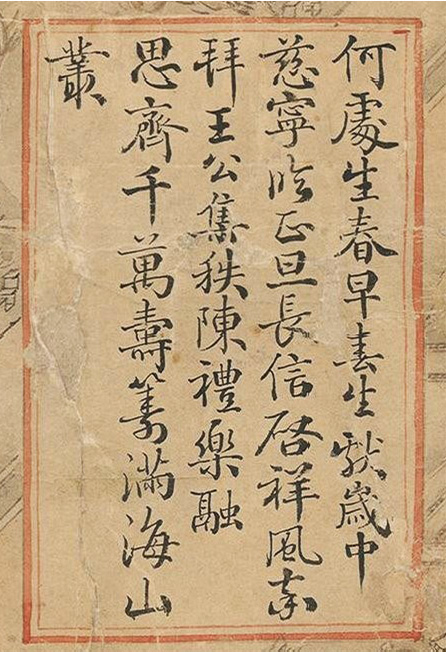 何處生春早春生獻歲中
慈寧臨正旦長信啓祥風
拜王公集秩陳禮樂融
思齊千萬壽籌滿海山
叢